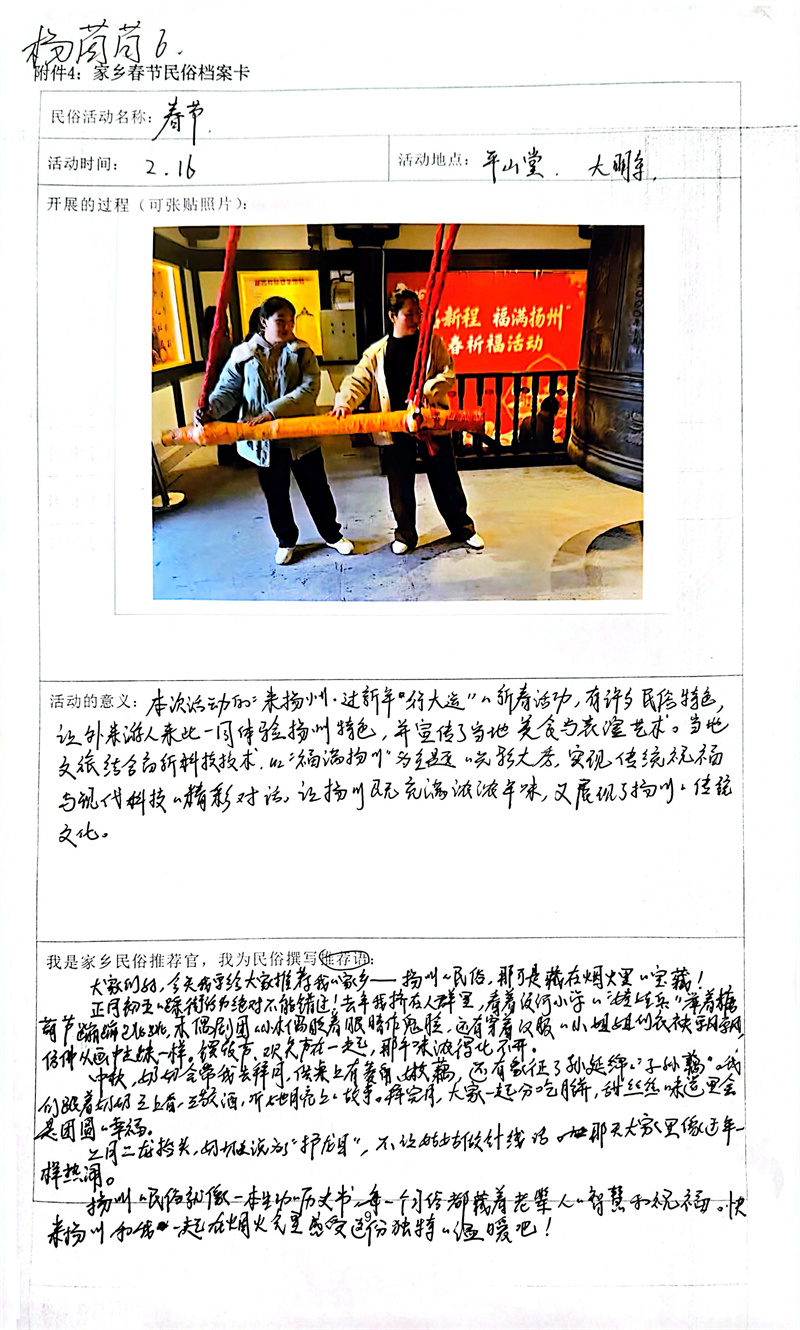 杨茵茵 6.
附件4：家乡春节民俗档案卡
民俗活动名称：春节.
活动时间： 2.16
活动地点： 平山堂. 大明寺.
开展的过程（可张贴照片）：
新程 福满扬州”
春祈福活动
活动的意义：本次活动的“来扬州·过新年“行大运”的新春活动，有许多民俗特色，
让外来游人来此一同体验扬州特色，并宣传了当地美食与表演艺术。当地
文旅结合高新科技技术，以“福满扬州”为主题的光影大秀，实现传统祝福
与现代科技的精彩对话，让扬州既充满浓浓年味，又展现了扬州的传统
文化。
我是家乡民俗推荐官，我为民俗撰写推荐语：
大家们好，今天我要给大家推荐我的家乡——扬州的民俗，那可是藏在烟火里的宝藏！
正月初五的踩街活动绝对不能错过！去年我挤在人群里，看着汶河小学的“娃娃兵”举着糖
葫芦蹦蹦跳跳，木偶剧团的小木偶眨着眼睛作鬼脸，还有穿着汉服的小姐姐们衣袂飘飘，
仿佛从画中走出来一样。锣鼓声，欢笑声在一起，那年味浓得化不开。
中秋，奶奶会带我去拜月，供桌上有菱角，嫩藕，还有象征了孙延绵的“子孙藕”。我
们跟着奶奶三上香，三敬酒，听她月亮上的故事。拜完月，大家一起分吃月饼，甜丝丝的味道里全
是团圆的幸福。
二月二龙抬头，奶奶说为“护龙目”，不让姑姑做针线活。那天大家里像过年一
样热闹。
扬州的民俗就像一本生动的历史书，每一个习俗都藏着老辈人的智慧和祝福。快
来扬州和我一起在烟火气里感受这份独特的温暖吧！